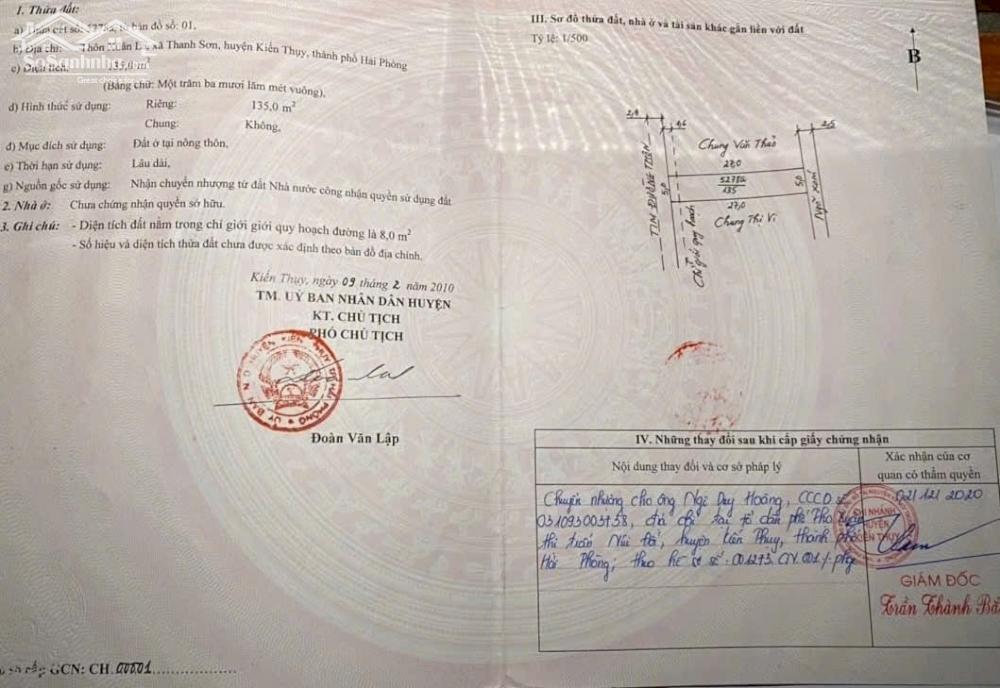 1. Thửa đất:
a) Thửa đất số: 527 bản đồ số: 01.
b) Địa chỉ: Thôn Xuân La, xã Thanh Sơn, huyện Kiến Thụy, thành phố Hải Phòng
c) Diện tích: 135,0 m²
(Bằng chữ: Một trăm ba mươi lăm mét vuông),
d) Hình thức sử dụng: Riêng: 135,0 m²
Chung: Không,
đ) Mục đích sử dụng: Đất ở tại nông thôn,
e) Thời hạn sử dụng: Lâu dài,
g) Nguồn gốc sử dụng: Nhận chuyển nhượng từ đất Nhà nước công nhận quyền sử dụng đất
2. Nhà ở: Chưa chứng nhận quyền sở hữu.
3. Ghi chú: - Diện tích đất nằm trong chỉ giới giới quy hoạch đường là 8,0 m²
- Số hiệu và diện tích thửa đất chưa được xác định theo bản đồ địa chính.
Kiến Thụy, ngày 09 tháng 2 năm 2010
TM. UỶ BAN NHÂN DÂN HUYỆN
KT. CHỦ TỊCH
PHÓ CHỦ TỊCH
Đoàn Văn Lập
GCN: CH 00001
III. Sơ đồ thửa đất, nhà ở và tài sản khác gắn liền với đất
Tỷ lệ: 1/500
B
2,4
1,6
2,5
TIM ĐƯỜNG THÔN
Chung Văn Thảo
27,0
5,0
527
135
5,0
27,0
Chung Thị Vi
Chỉ giới quy hoạch
Ngõ xóm
IV. Những thay đổi sau khi cấp giấy chứng nhận
Nội dung thay đổi và cơ sở pháp lý
Xác nhận của cơ quan có thẩm quyền
Chuyển nhượng cho ông Ngô Duy Hoàng, CCCD số
031093003758, địa chỉ tại tổ dân phố Thọ Xuân
thị trấn Núi Đối, huyện Kiến Thụy, thành phố
Hải Phòng; theo hồ sơ số 001293.CN.001
02/12/2020
CHI NHÁNH
HUYỆN
KIẾN THỤY
GIÁM ĐỐC
Trần Thành